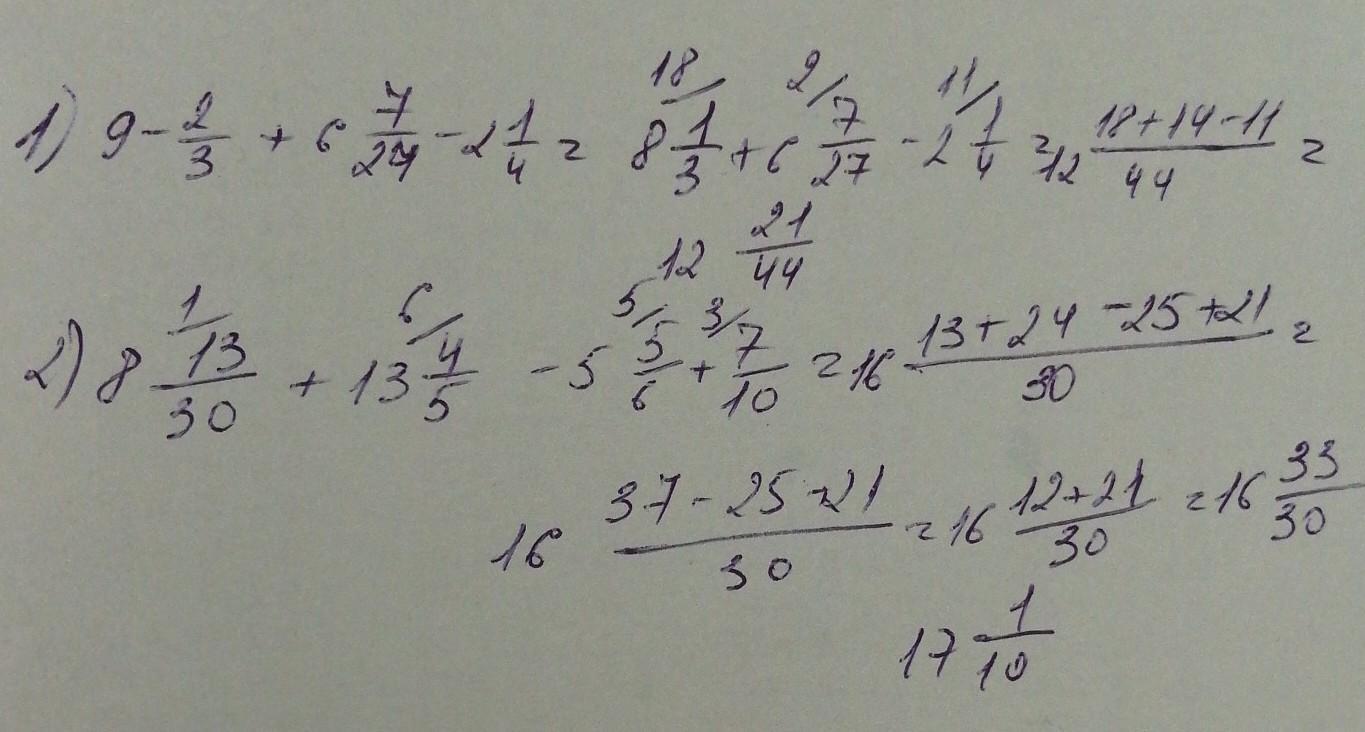 1) 9 - 2/3 + 6 7/27 - 2 1/4 = 8 1/3 + 6 7/27 - 2 1/4 = 12 (18+14-11)/44 =
12 21/44
2) 8 13/30 + 13 4/5 - 5 5/6 + 7/10 = 16 (13+24-25+21)/30 =
16 (37-25+21)/30 = 16 (12+21)/30 = 16 33/30
17 1/10